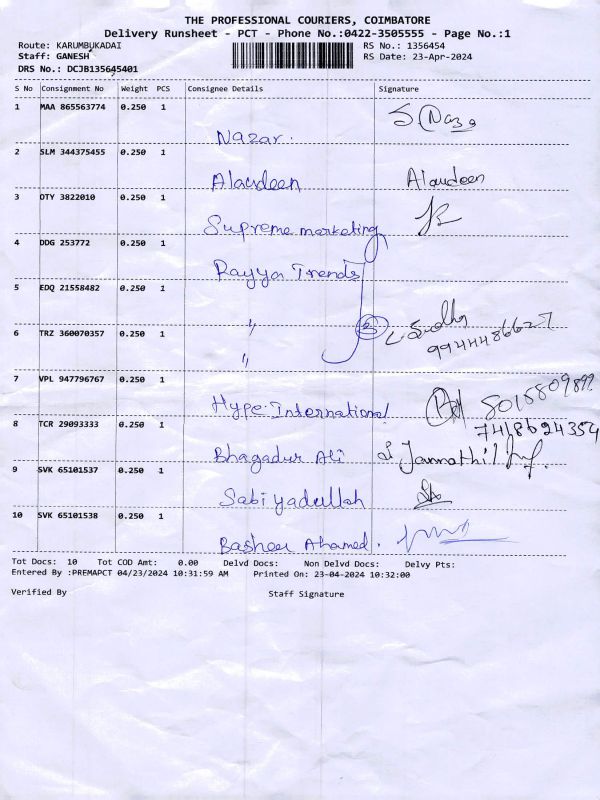 THE PROFESSIONAL COURIERS, COIMBATORE
Delivery Runsheet - PCT - Phone No.:0422-3505555 - Page No.:1
Route: KARUMBUKADAI
RS No.: 1356454
Staff: GANESH
RS Date: 23-Apr-2024
DRS No.: DCJB135645401
S No Consignment No Weight PCS Consignee Details Signature
1 MAA 865563774 0.250 1
Nazar. S Naza
2 SLM 344375455 0.250 1
Alaudeen Alaudeen
3 DTY 3822010 0.250 1
Supreme marketing
4 DDG 253772 0.250 1
Rayya Trends
5 EDQ 21558482 0.250 1
" 3
9944486627
6 TRZ 360070357 0.250 1
"
7 VPL 947796767 0.250 1
Hype International 8015809892
8 TCR 29093333 0.250 1
7418624354
Bhagadur Ali
9 SVK 65101537 0.250 1
Sabiyadullah
10 SVK 65101538 0.250 1
Basheer Ahamed.
Tot Docs: 10 Tot COD Amt: 0.00 Delvd Docs: Non Delvd Docs: Delvy Pts:
Entered By :PREMAPCT 04/23/2024 10:31:59 AM Printed On: 23-04-2024 10:32:00
Verified By Staff Signature